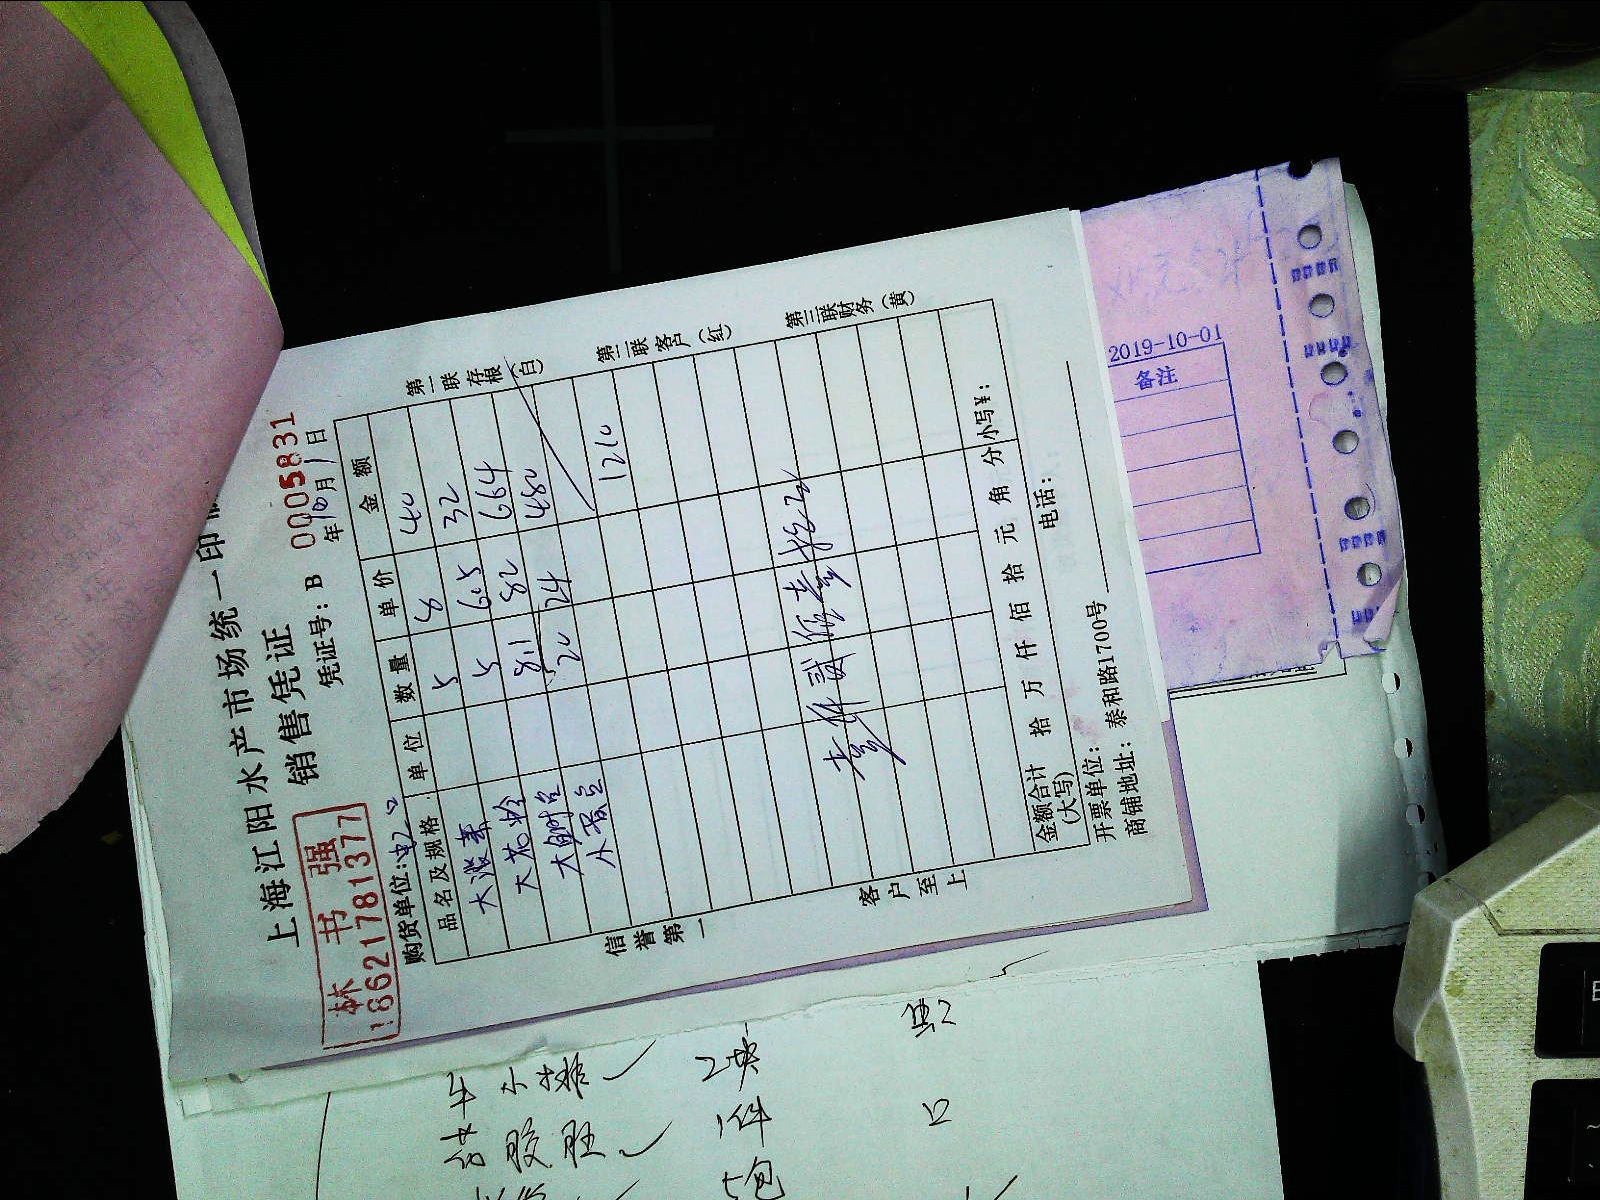 上海江阳水产市场统一印
销售凭证
林书强
18621781377
凭证号：B 0005831
购货单位：
年10月1日
品名及规格 单位 数量 单价 金额
5 8 40
大花蛤 5 6.5 32
8.1 82 664
20 24 480
1210
信誉第一
客户至上
第一联存根（白）
第二联客户（红）
第三联财务（黄）
金额合计（大写） 拾 万 仟 佰 拾 元 角 分 小写¥：
开票单位： 电话：
商铺地址：泰和路1700号
2019-10-01
备注
牛小排 2块
1件
5包